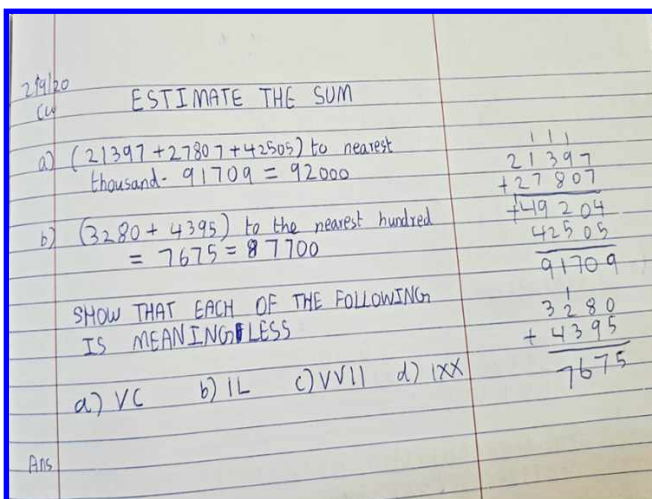 2/9/20
CW
ESTIMATE THE SUM
a) (21397 + 27807 + 42505) to nearest
thousand - 91709 = 92000
b) (3280 + 4395) to the nearest hundred
= 7675 = 7700
SHOW THAT EACH OF THE FOLLOWING
IS MEANINGLESS
a) VC b) IL c) VVII d) IXX
Ans
1 1 1
21397
+27807
+49204
42505
91709
1
3280
+ 4395
7675